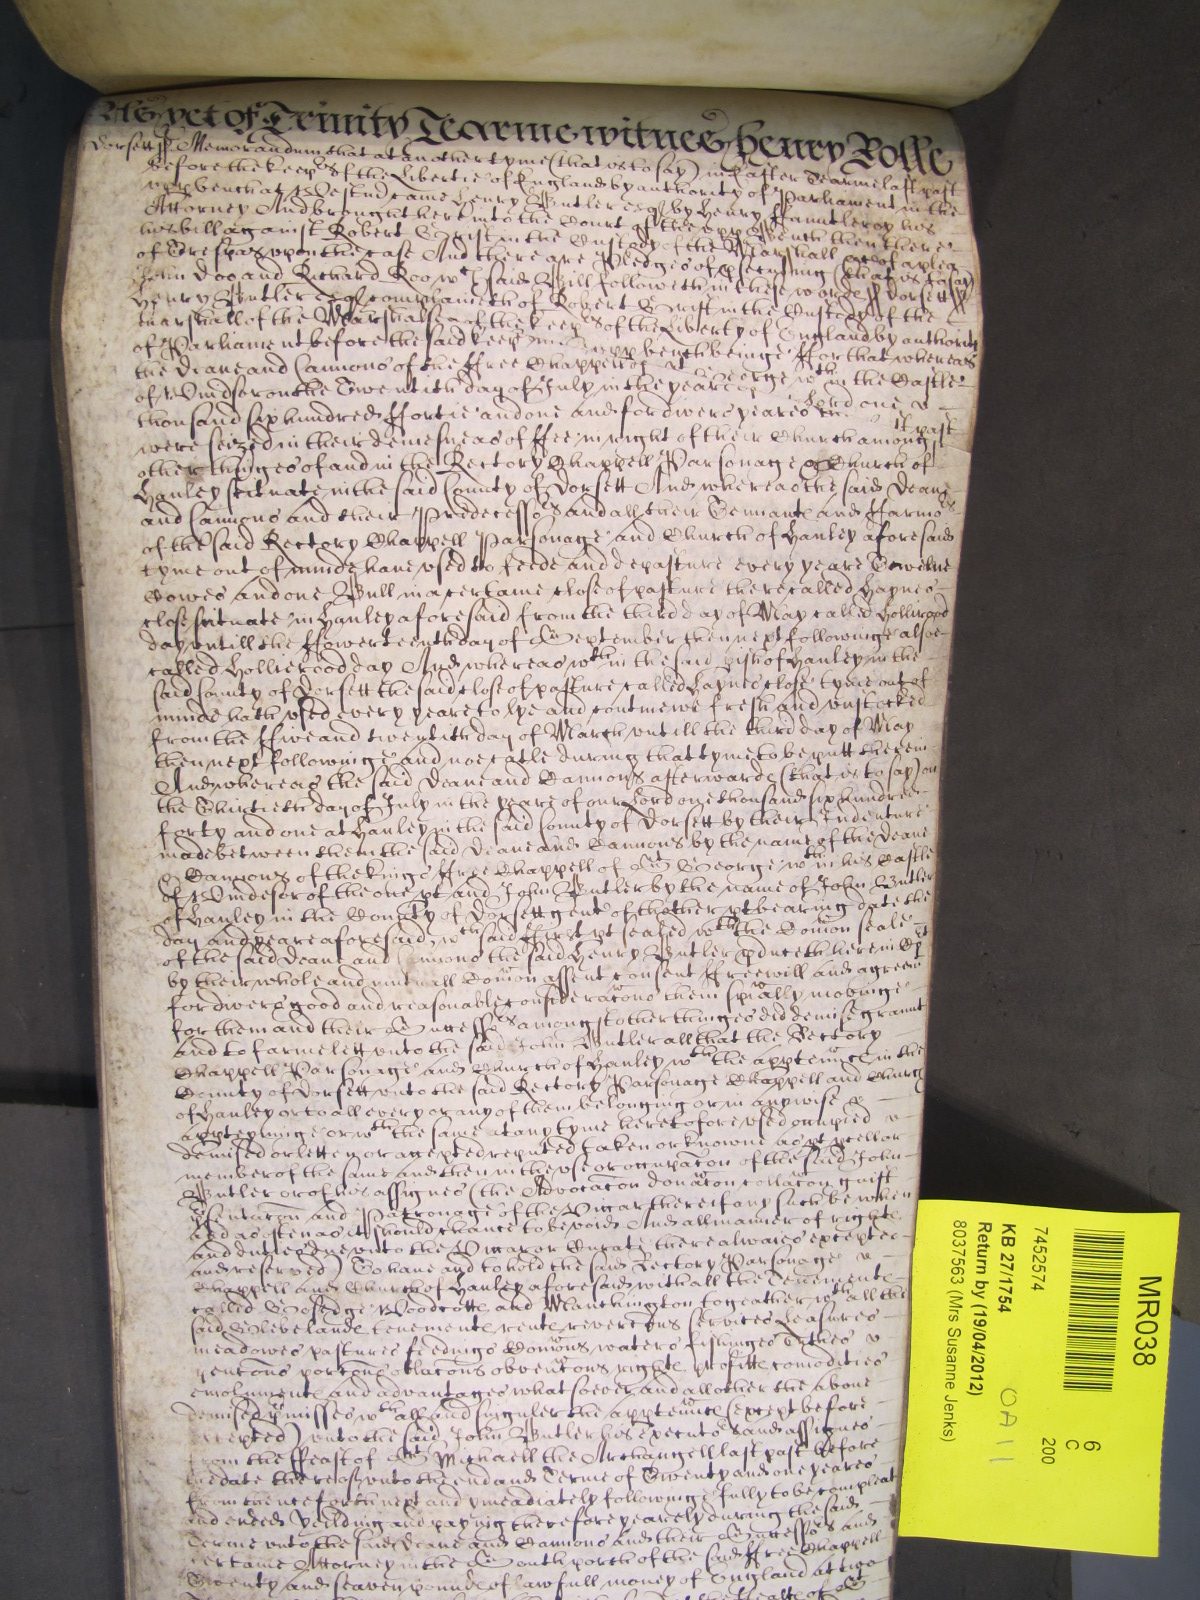 As yet of Trinity Tearme witnes Henry Rolle
Dorsett ss Memorandum that at another tyme (that is to say) in Easter Tearme last past
before the keeprs of the Libertie of England by authority of Parliament in the
uppbench at Westmr came Henry Butler esqr by Henry ffauntleroy his
Attorney And brought here into the Court of the upper Bench then there
his bill against Robert in the Custody of the Marshall &c of a plea
of Trespas upon the case And there are Pledges of psecuting (that is to say)
John Doo and Richard Roo wch said Bill followeth in these words ss Dorsett ss
Henry Butler esqr complaineth of Robert in the Custody of the
marshall of the Marshalsea of the keeprs of the Liberty of England by authority
of Parliament before the said keeprs uppbench beinge ffor that whereas
the Deane and Cannons of the ffree Chappell of George wthin the Castle
of Windsor on the Twentith day of July in the yeare Lord one
thousand six hundred ffortie and one and for divers yeares past
were seized in their demesne as of ffee in right of their Church among
other thinges of and in the Rectory Chappell Parsonage & Church of
Hanley scituate in the said County of Dorsett And whereas the said Deane
and Cannons and their Predecessors and all their Tennants and ffarmors
of the said Rectory Chappell Parsonage and Church of Hanley aforesaid
tyme out of minde have used to feede and depasture every yeare Twelve
Cowes and one Bull in a certaine close of pasture there called Haynes
close scituate in Hanley aforesaid from the third day of May called Hollirood
day untill the ffowerteenth day of September then next followinge alsoe
called Hollierood day And whereas wthin the said pish of Hanley in the
said County of Dorsett the said close of pasture called Haynes close tyme out of
minde hath used every yeare to lye and continewe fresh and unstocked
from the ffive and twentith day of March untill the third day of May
then next followinge and noe catle during that tyme to be putt therein
And whereas the said Deane and Cannons afterwards (that is to say) on
the Thirtieth day of July in the yeare of our Lord one thousand six hundred
forty and one at Hanley in the said County of Dorsett by their Indenture
made betweene them the said Deane and Cannons by the name of the Deane
& Cannons of the kings ffree Chappell of St George wthin his Castle
of Windesor of the one pt and John Butler by the name of John Butler
of Hanley in the County of Dorsett gent of thother pt bearing date the
day and yeare aforesaid wch said first pt sealed wth the Comon seale
of the said Deane and Cannons the said Henry Butler pduceth here in Court
by their whole and mutuall Comon assent consent ffreewill and agreemt
for divers good and reasonable consideracons them spially moveinge
for them and their Successors amongst other thinges did demise graunt
and to farme lett unto the said John Butler all that the Rectory
Chappell Parsonage and Church of Hanley wth the apptennces in the
County of Dorsett unto the said Rectory Parsonage Chappell and Church
of Hanley or to all every or any of them belonging or in any wise
apptayninge or wth the same at any tyme heretofore used occupied
demised or letten or accepted reputed taken or knowne as pt pcell or
member of the same and then in the use or occupacon of the said John
Butler or of his assignes (the Advocacon donacon collacon guift
psentacon and Patronage of the Vicar there if any such be when
and as often as it should chance to be void And all manner of rights
and duties due unto the Vicar or Curate there alwaies excepted
and reserved) To have and to hold the said Rectory Parsonage
Chappell and Church of Hanley aforesaid with all the Tenements
called Gussedge Woodcotts and Manchington togeather wth all the
said Glebelands tenements rents revercons services leasures
meadowes pastures feedings Comons waters fishinges tithes
pencons porcons oblacons obvencons rights profitts comodities
emoluments and advantages whatsoever and all other the above
demised pmisses wth all and singuler the apptennces (except before
excepted) unto the said John Butler his executors and assignes
from the ffeast of St Michaell the Archangell last past before
the date thereof unto the end and Terme of Twenty and one yeares
from thenceforth next and ymeadiately followinge fully to be compleat
and ended Yeilding and paying therefore yearely during the said
Terme unto the said Deane and Cannons and their Successors and
certaine Attorney in the South porch of the said ffree Chappell
Twenty and seaven pounds of lawfull money of England at two
MR038
6
C
200
7452574
KB 27/1754
OA11
Return by (19/04/2012)
8037563 (Mrs Susanne Jenks)